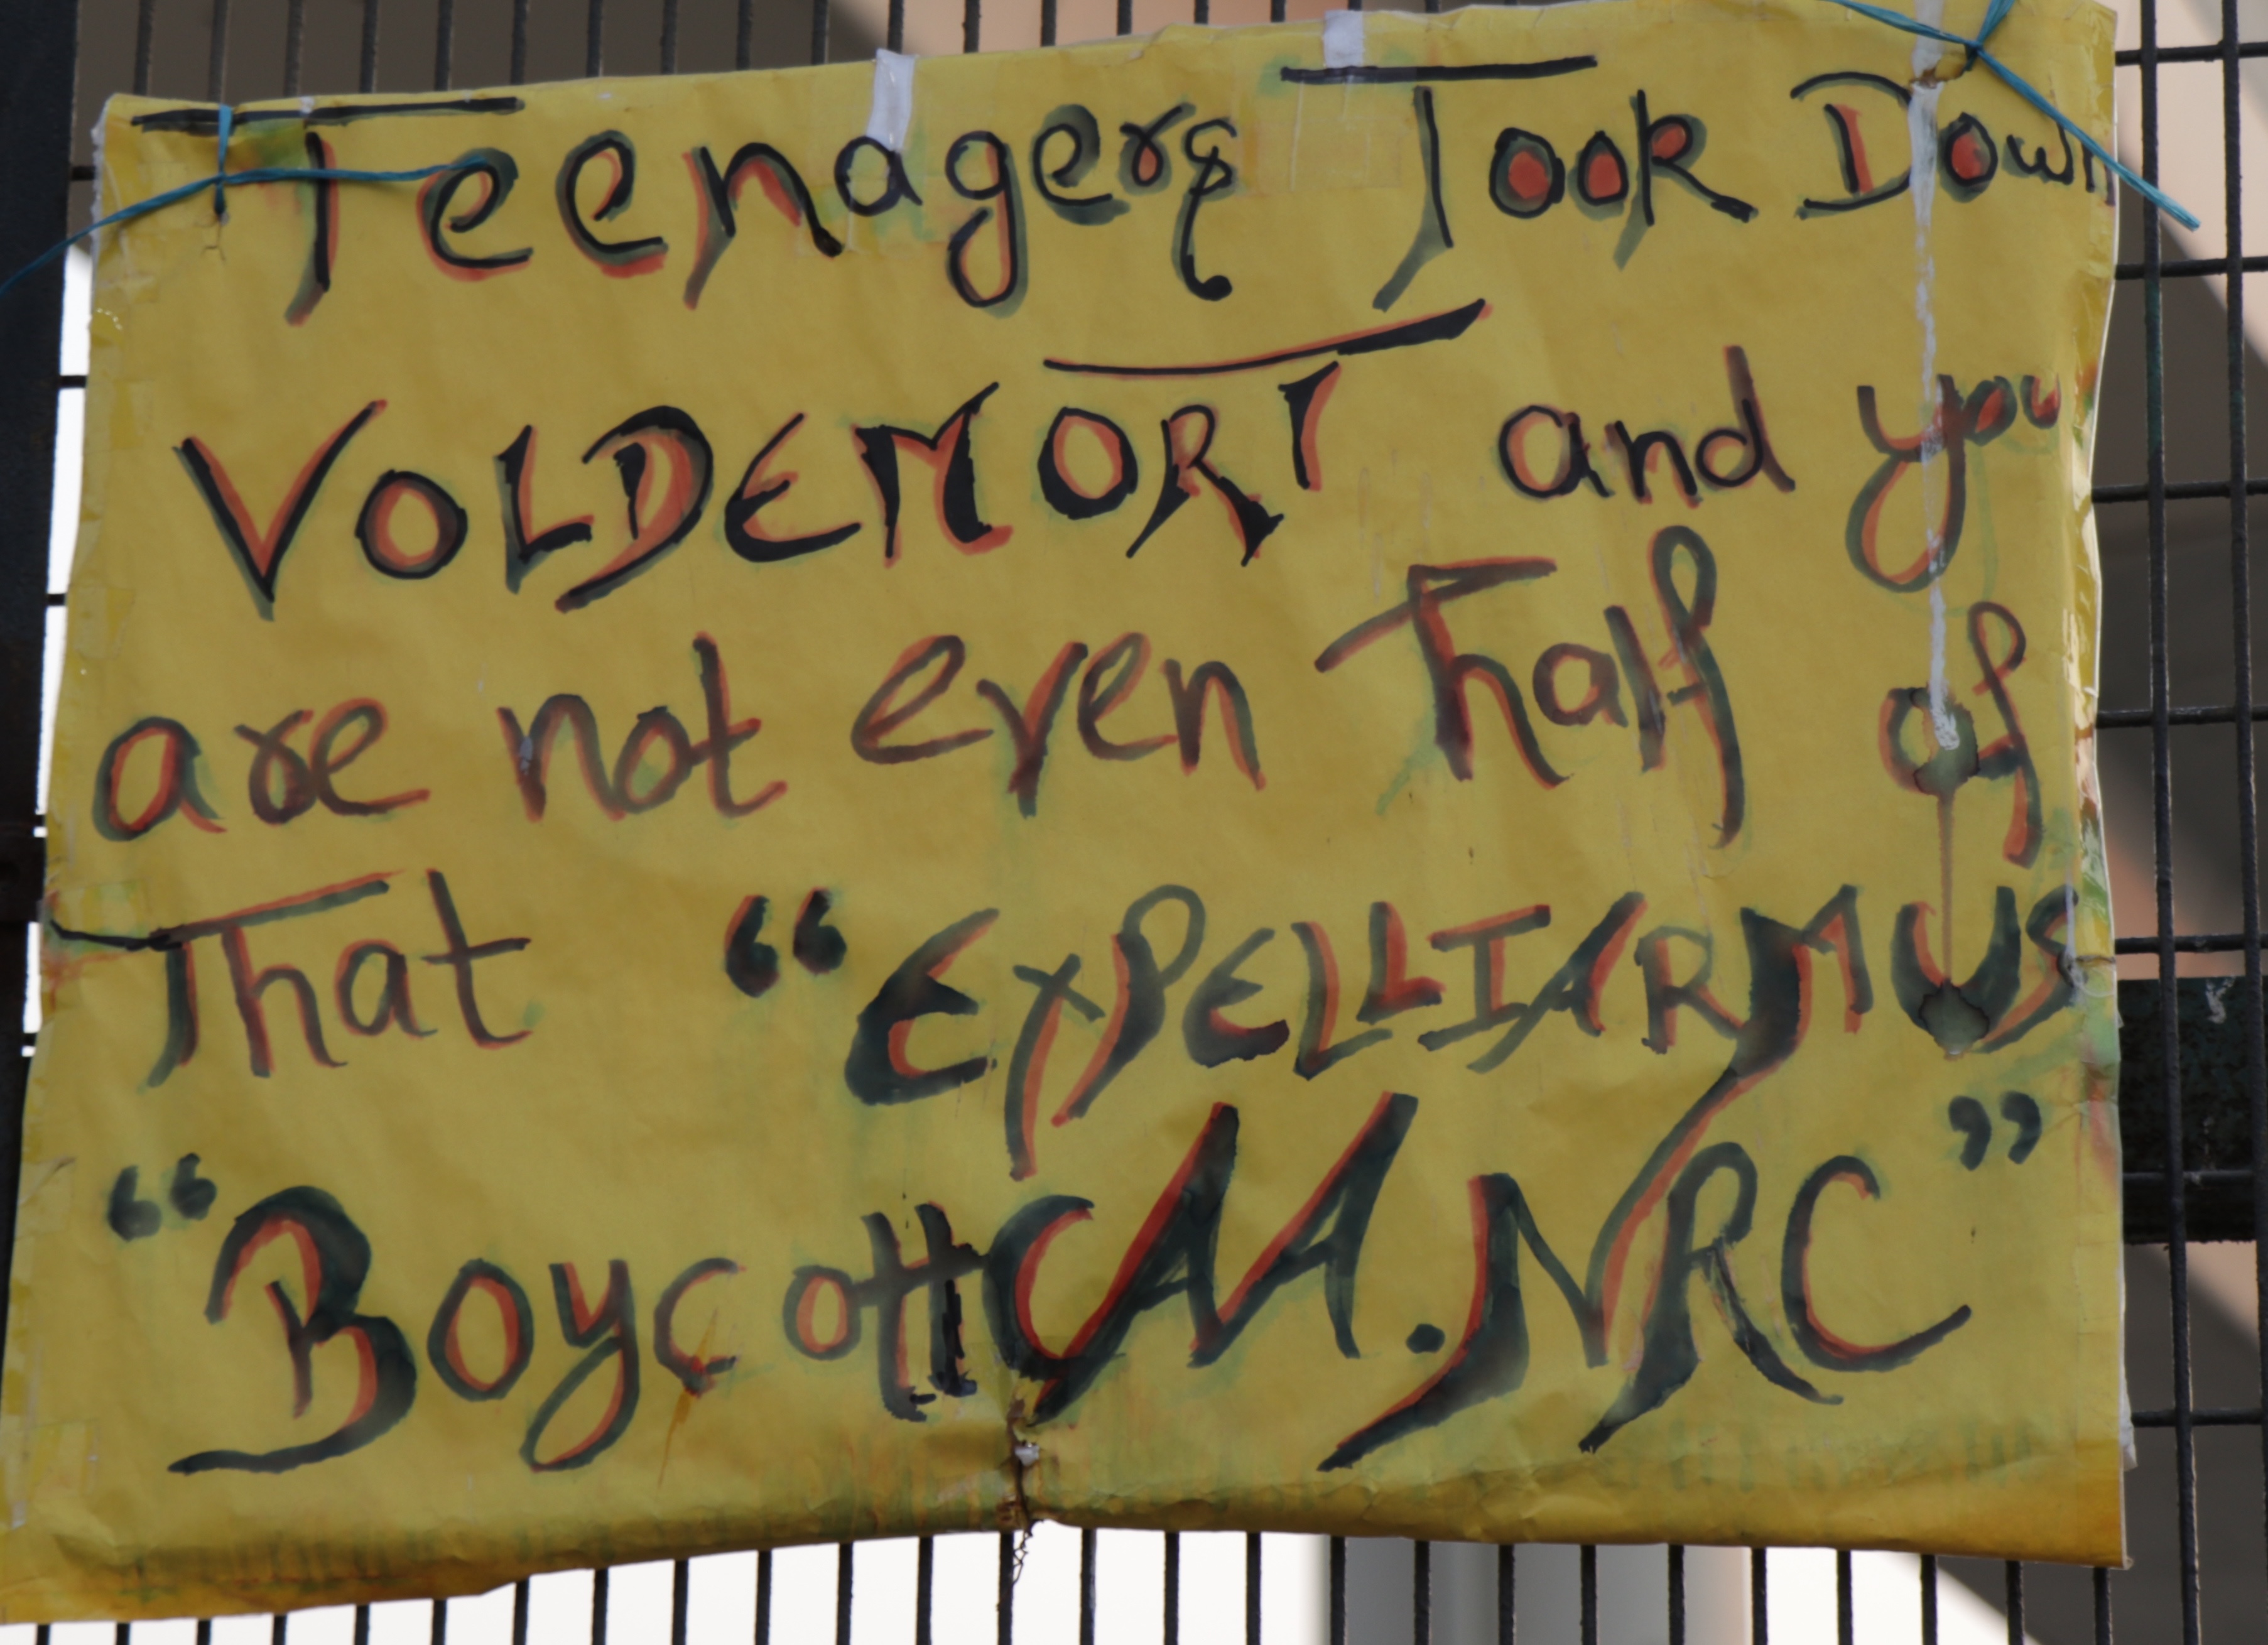 Teenagers Took Down
VOLDEMORT and you
are not even half of
That “EXPELLIARMUS
“Boycott CAA.NRC”